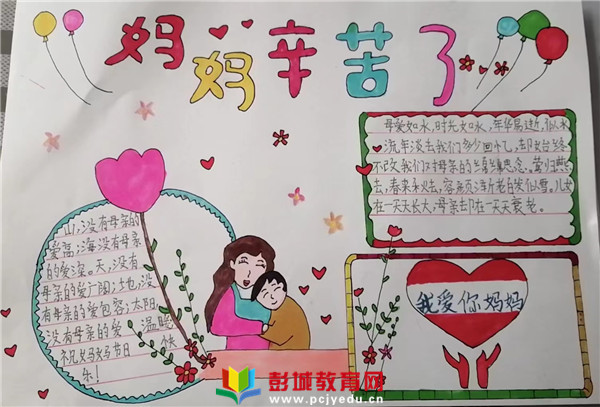 妈妈辛苦了
母爱如水,时光如水,年华易逝,似水
流年淡去我们多少回忆,却始终
不改我们对母亲的绵绵思念。莺归燕
去,春来秋去,容颜渐老,白发似雪。儿女
在一天天长大,母亲却在一天天衰老。
山,没有母亲的
爱高;海没有母亲
的爱深。天,没有
母亲的爱广阔;地,没
有母亲的爱包容;太阳,
没有母亲的爱温暖
祝妈妈节日快
乐!
我爱你妈妈
彭城教育网
www.pcjyedu.cn